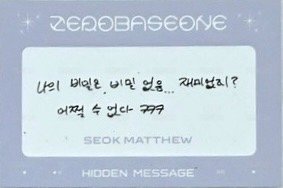 ZEROBASEONE
나의 비밀은, 비밀 없음... 재미없지?
어쩔 수 없다 ㅋㅋㅋ
SEOK MATTHEW
HIDDEN MESSAGE